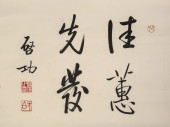 佳蕙
先發
啟功